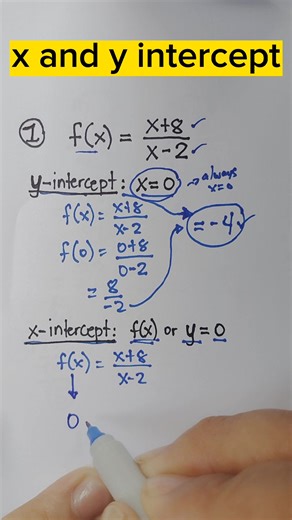 x and y intercept
① f(x) = x+8 / x-2
y-intercept: x=0 → always x=0
f(x) = x+8 / x-2
f(0) = 0+8 / 0-2 = -4
= 8 / -2
x-intercept: f(x) or y = 0
f(x) = x+8 / x-2
0